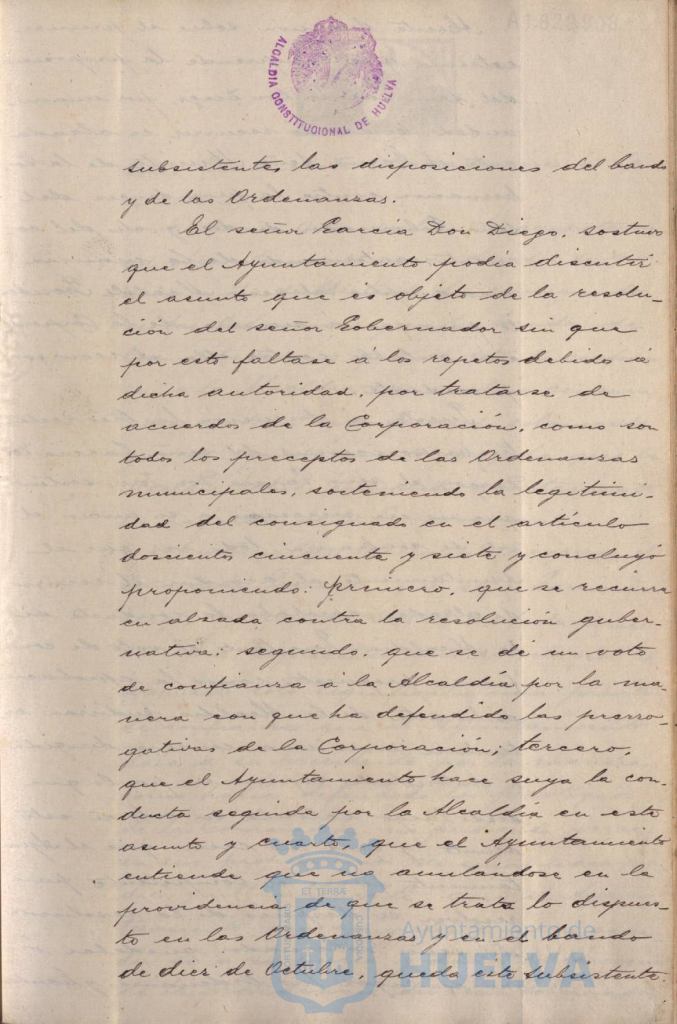 ALCALDIA CONSTITUCIONAL DE HUELVA
subsistentes las disposiciones del bando
y de las Ordenanzas.
El señor Garcia Don Diego, sostuvo
que el Ayuntamiento podia discutir
el asunto que es objeto de la resolu-
ción del señor Gobernador sin que
por esto faltase á los repetos debidos á
dicha autoridad, por tratarse de
acuerdos de la Corporación, como son
todos los preceptos de las Ordenanzas
municipales, sosteniendo la legitimi-
dad del consignado en el artículo
doscientos cincuenta y siete y concluyó
proponiendo: primero, que se recurra
en alzada contra la resolución guber-
nativa: segundo, que se dé un voto
de confianza á la Alcaldía por la ma-
nera con que ha defendido las prerro-
gativas de la Corporación; tercero,
que el Ayuntamiento hace suya la con-
ducta seguida por la Alcaldía en este
asunto y cuarto, que el Ayuntamiento
entiende que no anulándose en la
providencia de que se trata lo dispues-
to en las Ordenanzas y en el bando
de diez de Octubre, queda éste subsistente.
Ayuntamiento de
HUELVA